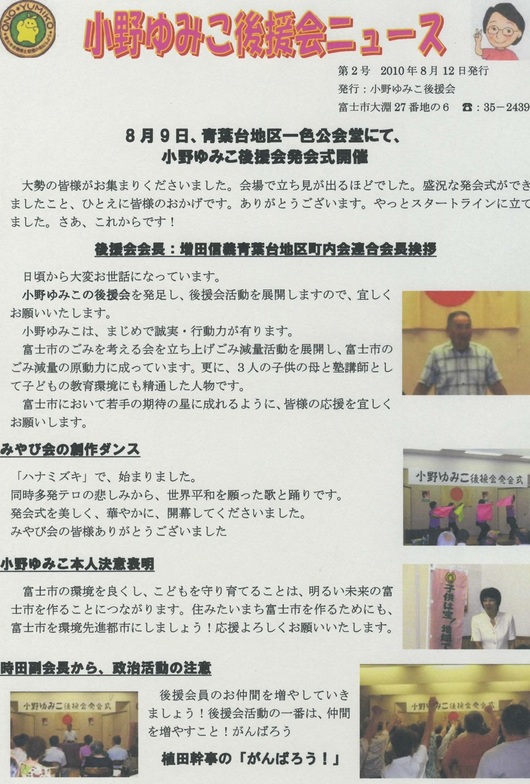 ONO★YUMIKO
小野ゆみこ後援会ニュース
第2号　2010年8月12日発行
発行：小野ゆみこ後援会
富士市大淵27番地の6　☎：35－2439
8月9日、青葉台地区一色公会堂にて、
小野ゆみこ後援会発会式開催
大勢の皆様がお集まりくださいました。会場で立ち見が出るほどでした。盛況な発会式ができ
ましたこと、ひとえに皆様のおかげです。ありがとうございます。やっとスタートラインに立て
ました。さあ、これからです！
後援会会長：増田信義青葉台地区町内会連合会長挨拶
日頃から大変お世話になっています。
小野ゆみこの後援会を発足し、後援会活動を展開しますので、宜しく
お願いいたします。
小野ゆみこは、まじめで誠実・行動力が有ります。
富士市のごみを考える会を立ち上げごみ減量活動を展開し、富士市の
ごみ減量の原動力に成っています。更に、3人の子供の母と塾講師とし
て子どもの教育環境にも精通した人物です。
富士市において若手の期待の星に成れるように、皆様の応援を宜しく
お願いします。
みやび会の創作ダンス
「ハナミズキ」で、始まりました。
同時多発テロの悲しみから、世界平和を願った歌と踊りです。
発会式を美しく、華やかに、開幕してくださいました。
みやび会の皆様ありがとうございました
小野ゆみこ後援会発会式
小野ゆみこ本人決意表明
富士市の環境を良くし、こどもを守り育てることは、明るい未来の富
士市を作ることにつながります。住みたいまち富士市を作るためにも、
富士市を環境先進都市にしましょう！応援よろしくお願いいたします。
子供は宝！地球
時田副会長から、政治活動の注意
後援会員のお仲間を増やしていき
ましょう！後援会活動の一番は、仲間
を増やすこと！がんばろう
植田幹事の「がんばろう！」
小野ゆみこ後援会発会式
小野ゆみこ後援会発会式